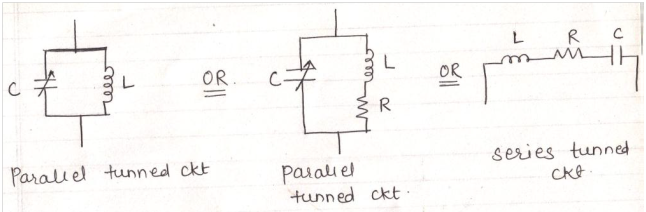 C
L
OR
C
L
R
OR
L R C
Parallel tunned ckt
Parallel
tunned ckt.
series tunned
ckt.